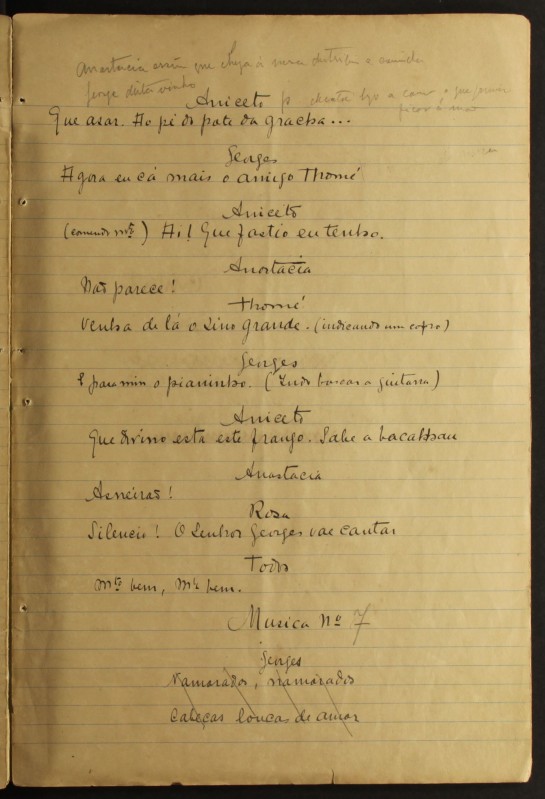 Anastacia assim que chega á mesa distribue a comida
Jorge deita vinho
Aniceto
Que asar. Ao pé do pote da gracha...
Georges
Agora eu cá mais o amigo Thomé
Aniceto
(comendo mto) Ai! Que fastio eu tenho.
Anastacia
Não parece!
Thomé
Venha de lá o Sino grande. (indicando um copro)
Georges
E para mim o pianinho. (Indo buscar a guitarra)
Aniceto
Que divino está este frango. Sabe a bacalhau
Anastacia
Asneiras!
Rosa
Silencio! O Senhor Georges vae cantar
Todos
Mto bem, Mto bem.
Musica Nº 7
Georges
Namorados, namorados
Cabeças loucas de amor